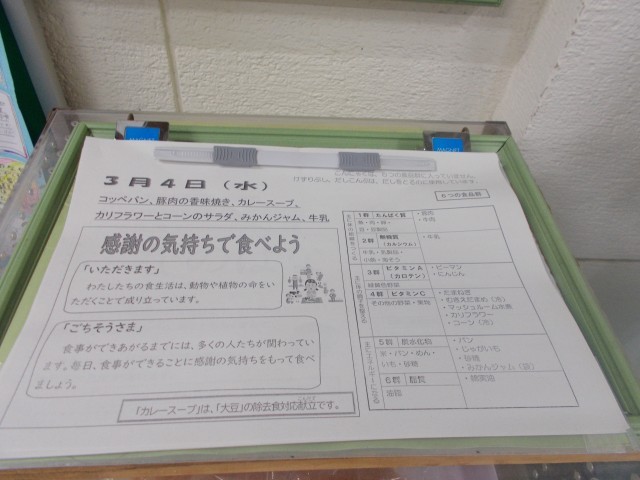 3月4日（水）
コッペパン、豚肉の香味焼き、カレースープ、
カリフラワーとコーンのサラダ、みかんジャム、牛乳
感謝の気持ちで食べよう
「いただきます」
わたしたちの食生活は、動物や植物の命をい
ただくことで成り立っています。
「ごちそうさま」
食事ができあがるまでには、多くの人たちが関わってい
ます。毎日、食事ができることに感謝の気持ちをもって食べ
ましょう。
「カレースープ」は、「大豆」の除去食対応献立です。
6つの食品群
1群 たんぱく質
・豚肉
2群 無機質
（カルシウム）
・牛乳
3群 ビタミンA
（カロテン）
緑黄色野菜
・ピーマン
・にんじん
4群 ビタミンC
その他の野菜・果物
・たまねぎ
・むきえだまめ（冷）
・マッシュルーム水煮
・カリフラワー
・コーン（冷）
5群 炭水化物
米・パン・めん・
いも・砂糖
・パン
・じゃがいも
・砂糖
・みかんジャム（袋）
6群 脂質
油脂